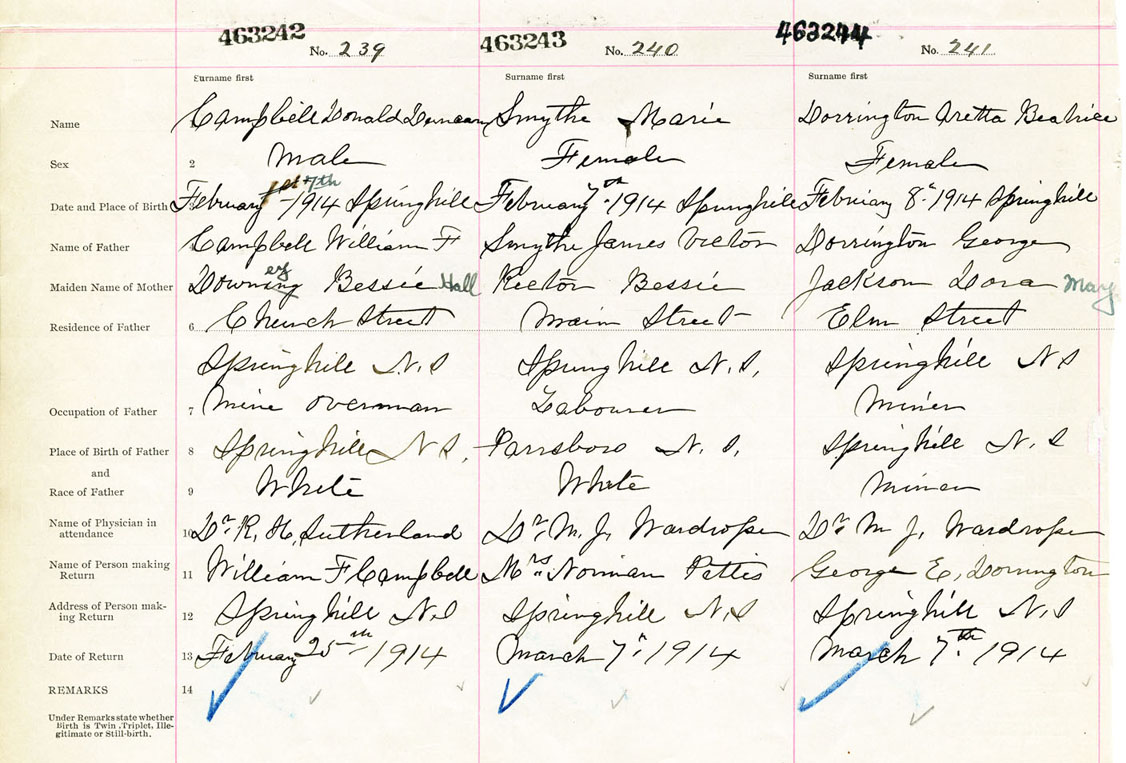 463242 463243 463244
No. 239 No. 240 No. 241
Surname first Surname first Surname first
Name Campbell Donald Duncan Smythe Marie Dorrington Aretta Beatrice
Sex 2 Male Female Female
Date and Place of Birth February 1st 7th 1914 Springhill February 7th 1914 Springhill February 8th 1914 Springhill
Name of Father Campbell William F Smythe James Victor Dorrington George
Maiden Name of Mother Bessie Hall Rector Bessie Jackson Dora May
Residence of Father 6 Church Street Main Street Elm Street
Springhill N.S Springhill N.S. Springhill N S
Occupation of Father 7 Mine Overman Labourer Miner
Place of Birth of Father 8 Springhill N S. Parrsboro N. S. Springhill N. S
and
Race of Father 9 White White Miner
Name of Physician in attendance 10 Dr. R. H. Sutherland Dr M. J. Wardrope Dr M J. Wardrope
Name of Person making Return 11 William F Campbell Mrs. Norman Pettis George E. Dorrington
Address of Person making Return 12 Springhill N.S Springhill N.S Springhill N.S
Date of Return 13 February 25th 1914 March 7. 1914 March 7th. 1914
REMARKS 14
Under Remarks state whether
Birth is Twin, Triplet, Ille-
gitimate or Still-birth.